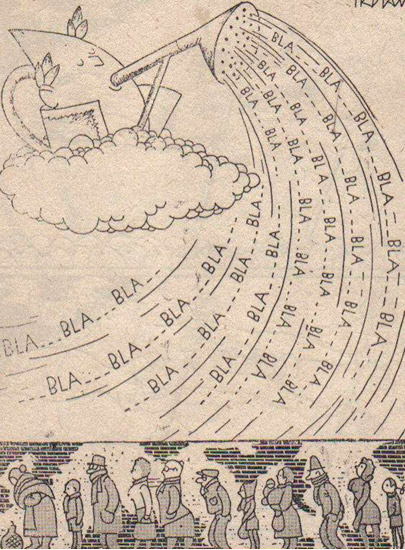 BLA
BLA BLA
BLA BLA
BLA BLA BLA
BLA BLA BLA
BLA BLA
BLA BLA BLA
BLA BLA BLA
BLA BLA BLA BLA
BLA BLA BLA
BLA BLA BLA BLA BLA
BLA BLA BLA BLA
BLA BLA BLA BLA
BLA BLA BLA
BLA BLA BLA